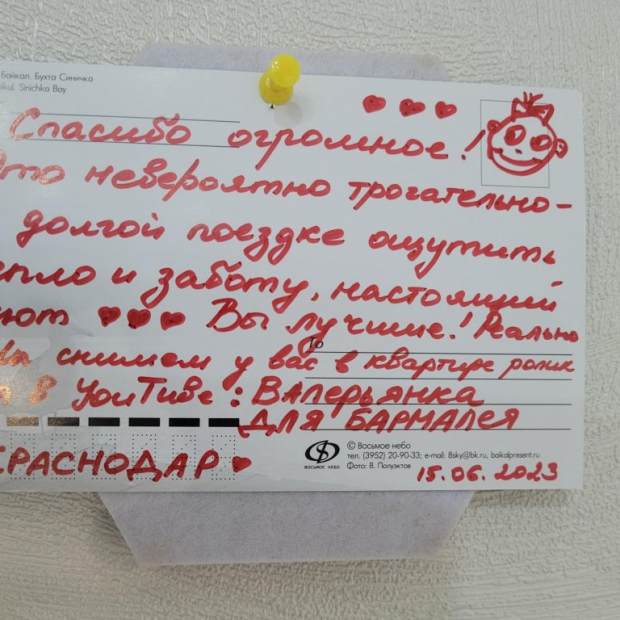 Байкал. Бухта Синичка
Sinichka Bay
Спасибо огромное!
Это невероятно трогательно -
долгой поездке ощутить
тепло и заботу, настоящий
уют Вы лучшие! Реально
Мы снимем у вас в квартире ролик
в YouTube: ВАЛЕРЬЯНКА
ДЛЯ БАРМАЛЕЯ
КРАСНОДАР
15.06.2023
ВОСЬМОЕ НЕБО
© Восьмое небо
тел. (3952) 20-90-33; e-mail: 8sky@bk.ru, baikalpresent.ru
Фото: В. Полуэктов